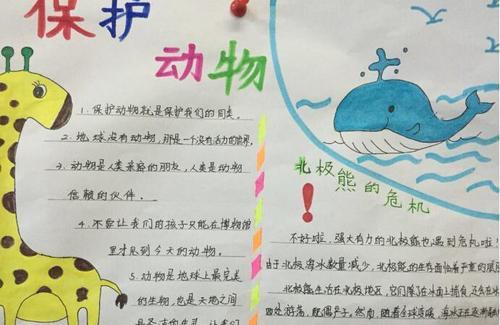 保护
动物
1. 保护动物就是保护我们的同类。
2. 地球没有动物，那是一个没有活力的世界
3. 动物是人类亲密的朋友，人类是动物
信赖的伙伴。
4. 不要让我们的孩子只能在博物馆
里才见到今天的动物。
5. 动物是地球上最完美
的生物，也是天地之间
北极熊的危机
!
不好啦，强大有力的北极熊也遇到危机啦！
由于北极海冰数量减少，北极熊的生存面临着严重的
北极熊生活在北极地区，它们除了在冰面上捕食
四处游荡，